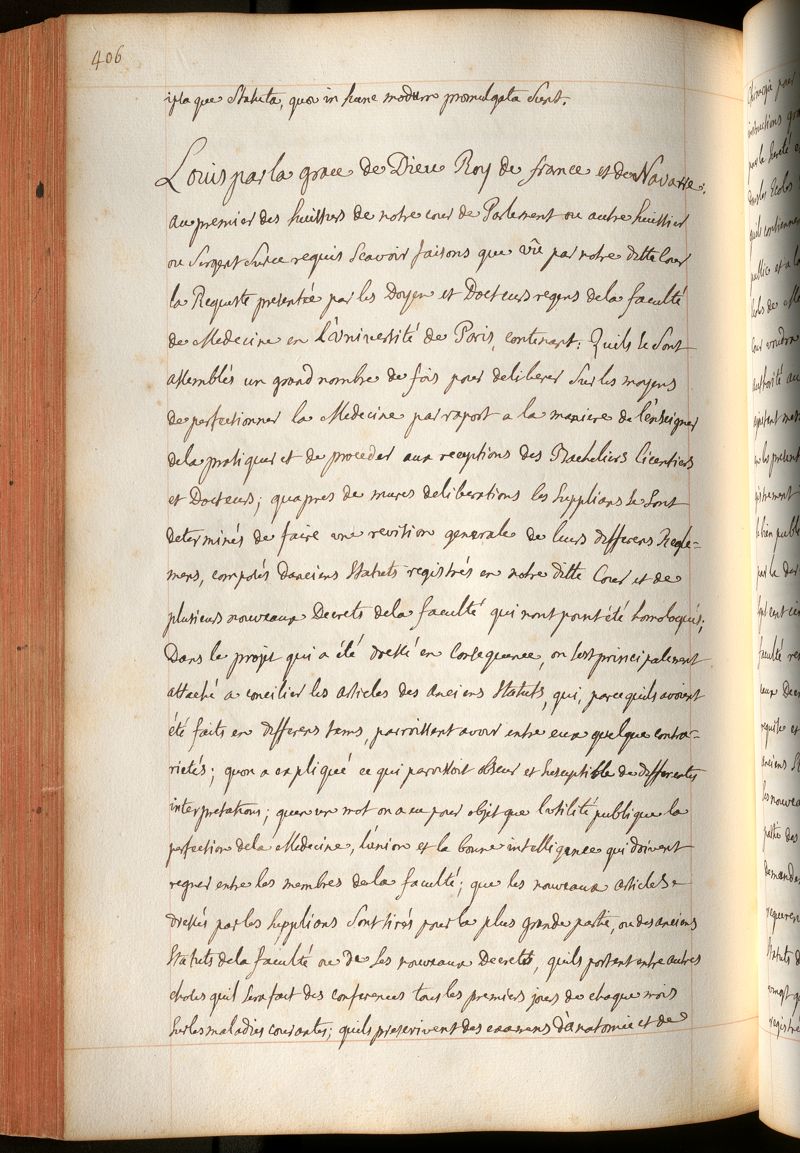 406
ipsa que Statuta, quæ in hunc modum promulgata sunt.
Louis par la grace de Dieu Roy de france et de Navarre.
au premier des huissiers de notre cour de Parlement ou autre huissier
ou Sergent Sur ce requis Scavoir faisons que vû par notre ditte Cour
la Requeste presentée par les Doyen et Docteurs regens de la faculté
de Medecine en l'Université de Paris, contenant: Quils se sont
assemblés un grand nombre de fois pour deliberer Sur les moyens
de perfectionner la Medecine par raport a la maniere de l'enseigner
de la pratiquer et de proceder aux receptions des Bacheliers licentiers
et Docteurs; quapres de mures deliberations les Supplians se sont
determinés de faire une revision generale de leurs differens Regle-
mens, composés danciens Statuts registrés en notre ditte Cour et de
plusieurs nouveaux Decrets de la faculté qui nont point été homologués;
Dans le projet qui a été dressé en Consequence, on sest principalement
attaché a concilier les articles des anciens Statuts, qui, parcequils avoient
été faits en differens tems, paroissent avoir entre eux quelque contra-
rietés; quon a expliqué ce qui paroissoit obscur et susceptible de differentes
interpretations; quen un mot on a eu pour objet que lutilité publique la
perfection de la Medecine, l'union et la bonne intelligence qui doivent
regner entre les membres de la faculté; que les nouveaux articles
dressés par les supplians Sont tirés pour la plus grande partie, ou des anciens
Statuts de la faculté ou de Ses nouveaux Decrets, quils portent entre autres
choses quil Sera fait des conferences tous les premiers jours de chaque mois
Sur les maladies courantes; quils prescrivent des examens d'anatomie et de